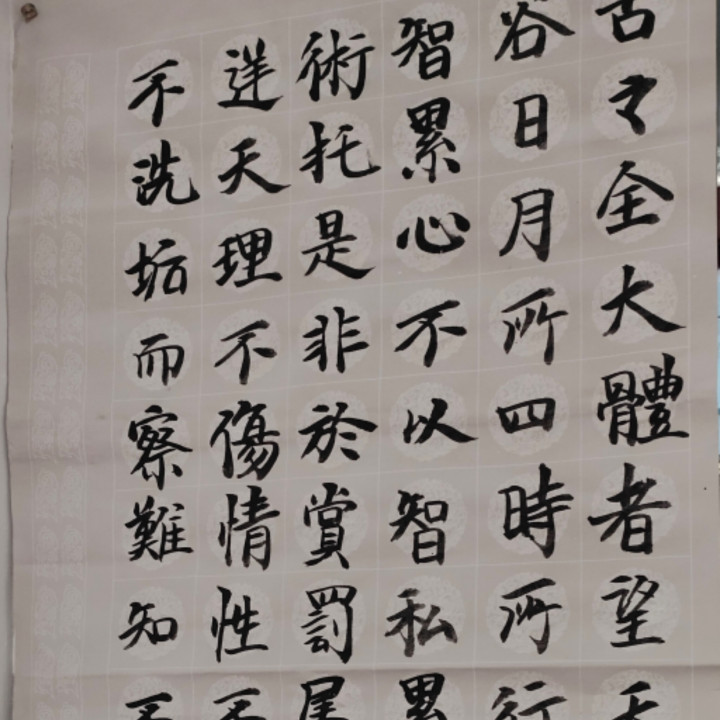 古之全大體者望天
谷日月所四時所行
智累心不以智私累
術托是非於賞罰
逆天理不傷情性不
不洗垢而察難知不